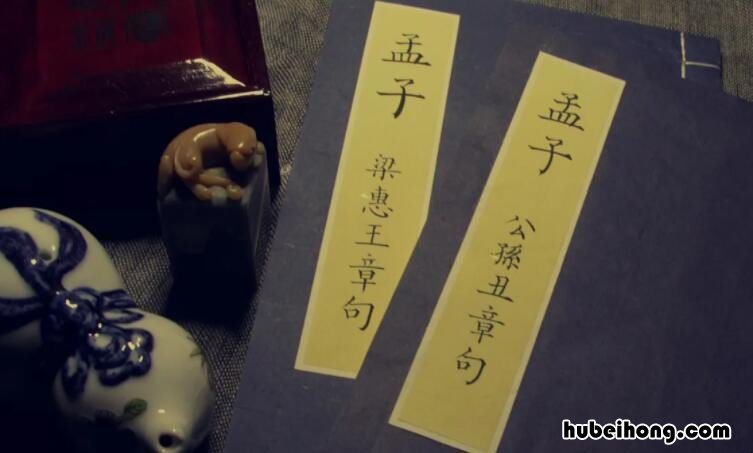 孟子 梁惠王章句
孟子 公孫丑章句
hubeihong.com